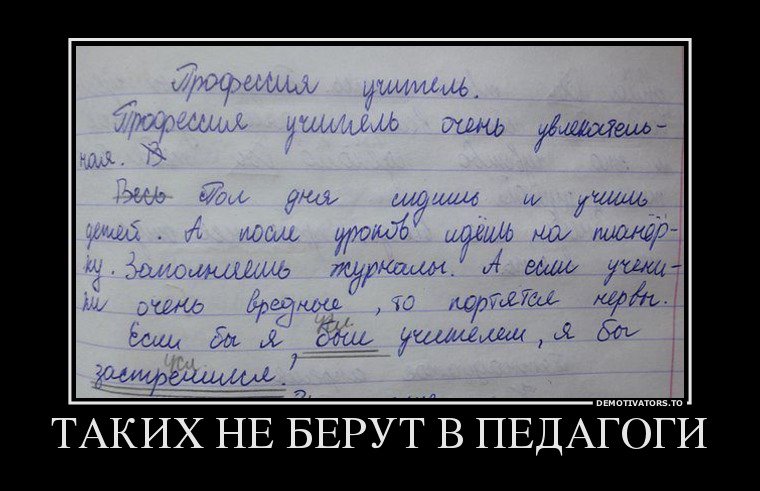 Профессия учитель.
Профессия учитель очень увлекатель-
ная. В
Весь Пол дня сидишь и учишь
детей. А после уроков идёшь на планёр-
ку. Заполняешь журналы. А если учени-
ки очень вредные, то портятся нервы.
Если бы я был учителем, я бы
застрелился!
DEMOTIVATORS.TO
ТАКИХ НЕ БЕРУТ В ПЕДАГОГИ